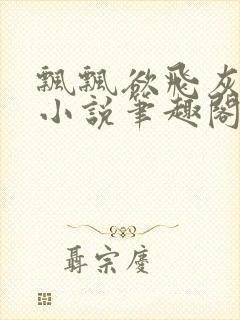 飄飄欲飛灰
小說筆趣閣
聶宗慶